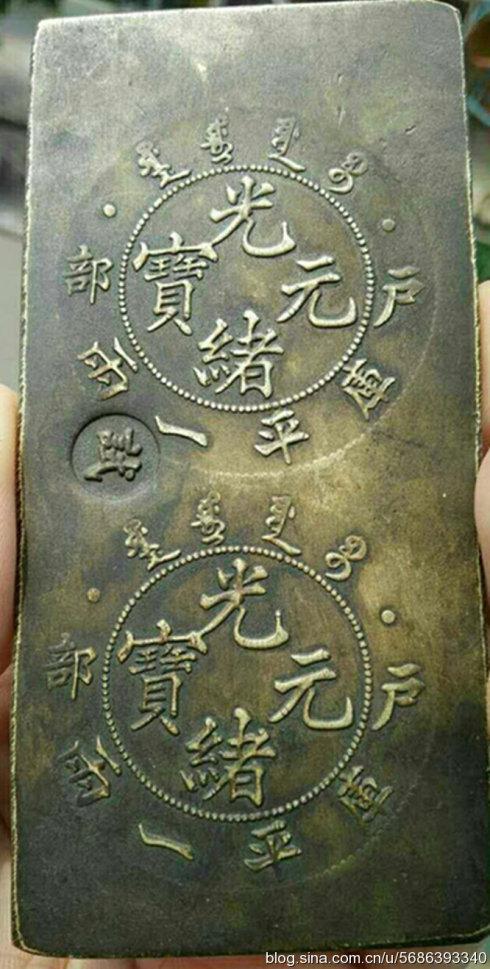 光緒元寶
戶部
庫平一兩
光緒元寶
戶部
庫平一兩
blog.sina.com.cn/u/5686393340